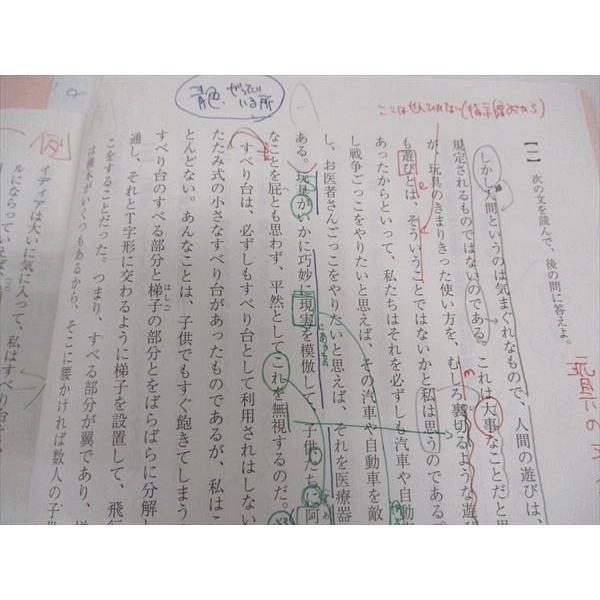 【一】 次の文を読んで、後の問に答えよ。
しかし人間というのは気まぐれなもので、人間の遊びは、
規定されるものではないのである。これは大事なことだと思
が、玩具のきまりきった使い方を、むしろ裏切るような遊び
も遊びとは、そういうことではないかと私は思うのである。
あったからといって、私たちはそれを必ずしも汽車や自動
し戦争ごっこをやりたいと思えば、その汽車や自動車を敵
し、お医者さんごっこをやりたいと思えば、それを医療器
ある。玩具がいかに巧妙に現実を模倣して、子供たちに阿
なことを屁とも思わず、平然としてこれを無視するのだ。
すべり台は、必ずしもすべり台として利用されはしない
たたみ式の小さなすべり台があったものであるが、私はこ
とんどない。あんなことは、子供でもすぐ飽きてしまう
すべり台のすべる部分と梯子の部分とをばらばらに分解し
はしご
通し、それとT字形に交わるように梯子を設置して、飛行
こをすることだった。つまり、すべる部分が翼であり、
は横木がいくつもあるから、そこに腰かければ数人の子供
イディアは大いに気に入って、私はすべり台を
例
青色
いる所